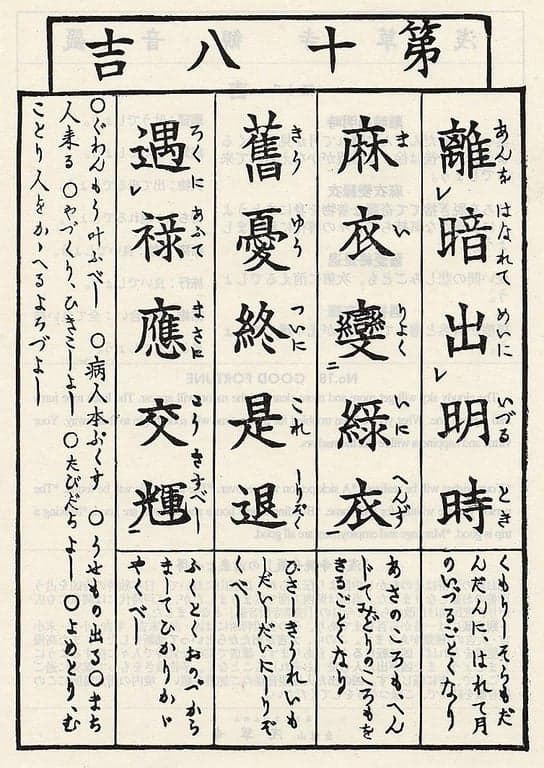 第十八吉
離㆑暗出㆑明時
あんを はなれて めいに いづる とき
くもりしそらもだ
んだんに、はれて月
のいづるごとくなり
麻衣變㆓綠衣㆒
まい りよくいに へんず
あさのころも、へん
じてみどりのころもを
きるごとくなり
舊憂終是退
きうゆう ついに これ しりぞく
ひさしきうれいも
しだいしだいにしりぞ
くべし
遇㆑祿應㆓交輝㆒
ろくに あふて まさに きすべし
ふくとくおのづから
きましてひかりかゞ
やくべし
〇ぐわんもう叶ふべし 〇病人本ぷくす 〇うせもの出る 〇まち
人来る 〇やづくり、ひきこしよし 〇たびだちよし 〇よめとり、む
ことり人をかゝへるよろづよし